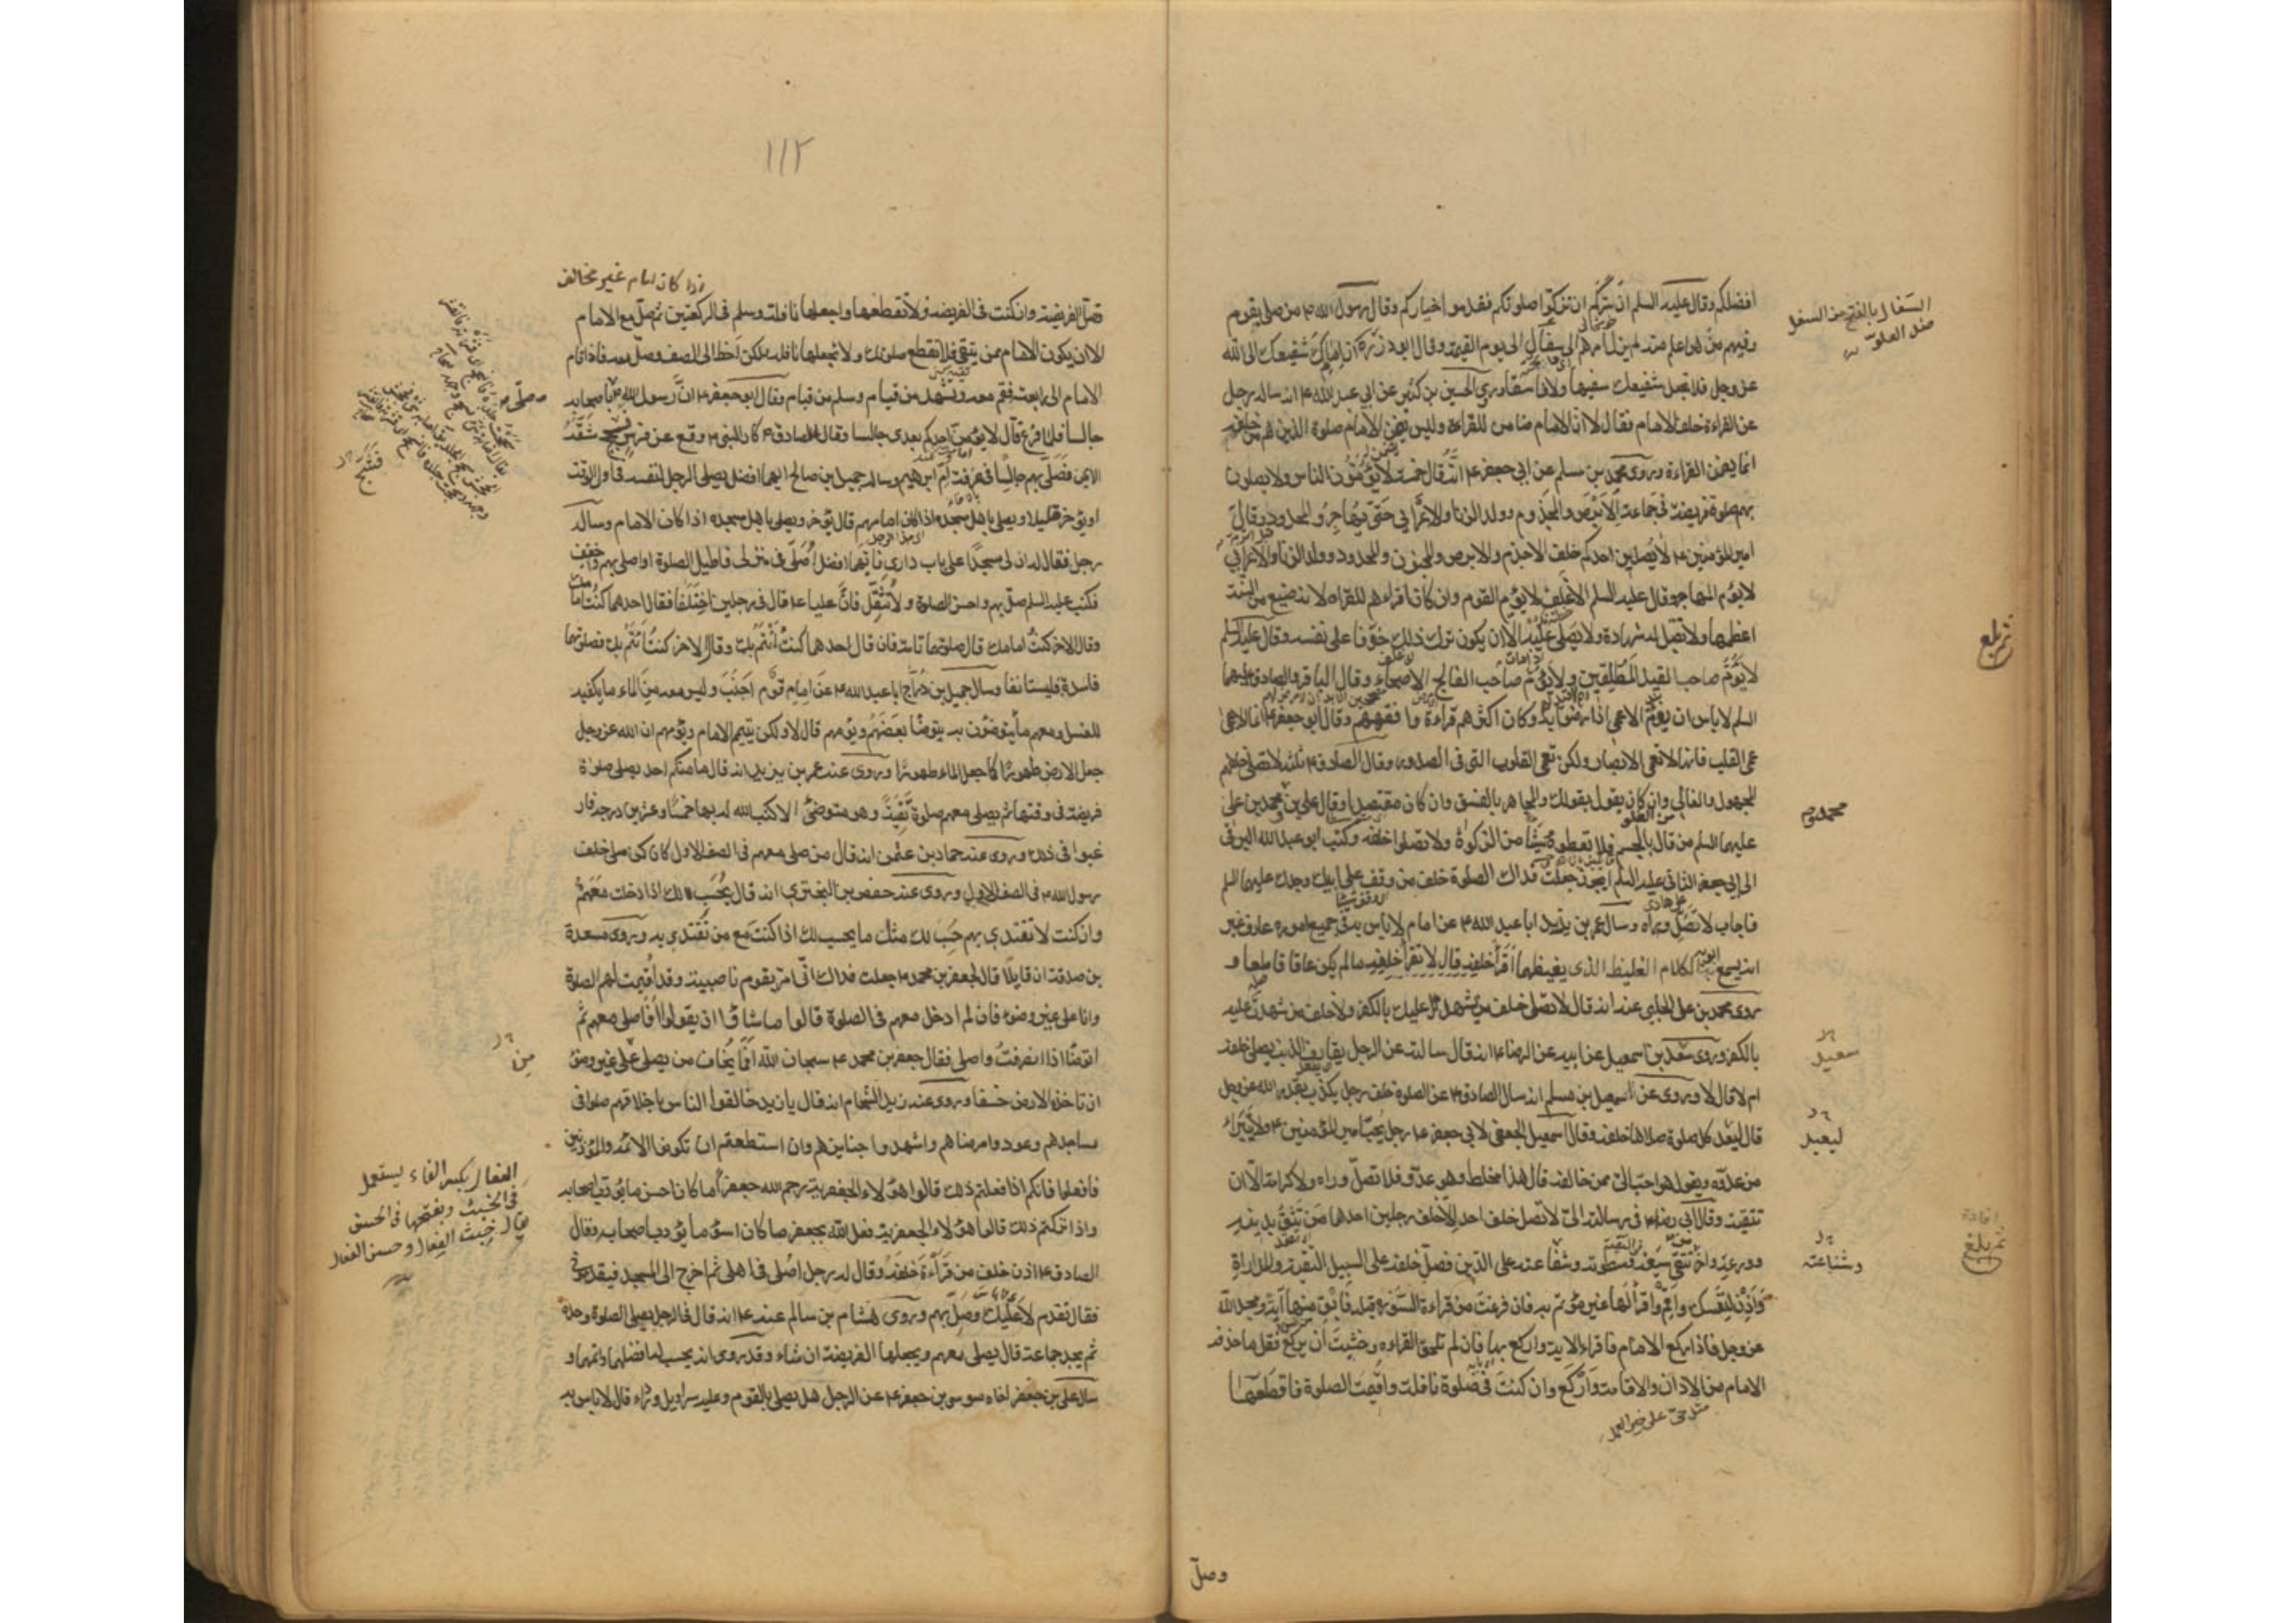 افضلكم وقال عليه السلم ان سركم ان تزكوا صلوتكم فقدموا خياركم وقال رسول الله ص من صلى بقوم
وفيهم من هو اعلم منه لم يزل امرهم الى سفال الى يوم القيمة وقال ابو ذر ره ان امامك شفيعك الى الله
عز وجل فلا تجعل شفيعك سفيها ولا فاسقا وروى الحسين بن كثير عن ابي عبد الله ع انه ساله رجل
عن القراءة خلف الامام فقال لا ان الامام ضامن للقراءة وليس يضمن الامام صلوة الذين هم من خلفه
انما يضمن القراءة وروى محمد بن مسلم عن ابي جعفر ع انه قال خمسة لا يؤمون الناس ولا يصلون
بهم صلوة فريضة في جماعة الابرص والمجذوم وولد الزنا والاعرابي حتى يهاجر والمحدود وقال
امير المؤمنين ع لا يصلين احدكم خلف الاجذم والابرص والمجنون والمحدود وولد الزنا والاعرابي
لا يؤم المهاجر وقال عليه السلم الاغلف لا يؤم القوم وان كان اقراهم للقراه لانه ضيع من السنة
اعظمها ولا تقبل له شهادة ولا يصلى عليه الا ان يكون ترك ذلك خوفا على نفسه وقال عليه السلم
لا يؤم صاحب القيد المطلقين ولا يؤم صاحب الفالج الاصحاء وقال الباقر والصادق عليهما
السلم لا باس ان يؤم الاعمى اذا رضوا به وكان اكثرهم قراءة وافقههم وقال ابو جعفر ع انما الاعمى
عمى القلب فانها لا تعمى الابصار ولكن تعمى القلوب التى فى الصدور وقال الصادق ع ثلثة لا تصلى خلفهم
المجهول والغالي وان كان يقول بقولك والمجاهر بالفسق وان كان مقتصدا وقال علي بن محمد ومحمد بن على
عليهما السلم من قال بالجسم فلا تعطوه شيئا من الزكوة ولا تصلوا خلفه وكتب ابو عبد الله البرقى
الى ابي جعفر الثاني عليه السلم ايجوز جعلت فداك الصلوة خلف من وقف على ابيك وجدك عليهما السلم
فاجاب لا تصل وراه وسال عمر بن يزيد ابا عبد الله ع عن امام لا باس به فى جميع اموره عارف غير
انه يسمع ابويه الكلام الغليظ الذى يغيظهما اقرا خلفه قال لا تقرأ خلفه ما لم يكن عاقا قاطعا و
روى محمد بن على الحلبي عنه انه قال لا تصلى خلف من يشهد عليك بالكفر ولا خلف من شهدت عليه
بالكفر وروى سعد بن اسمعيل عن ابيه عن الرضا ع انه قال سالته عن الرجل يقارف الذنب يصلى خلفه
ام لا قال لا وروى عن اسمعيل بن مسلم انه سال الصادق ع عن الصلوة خلف رجل يكذب بقدر الله عز وجل
قال ليعد كل صلوة صلاها خلفه وقال اسمعيل الجعفي لابي جعفر ع رجل يحب امير المؤمنين ع ولا يتبراء
من عدوه ويقول هو احب الى ممن خالفه قال هذا مخلط وهو عدو فلا تصل وراه ولا كرامة الا ان
تتقيه وقال ابي رضه فى رسالته الى لا تصل خلف احد الا خلف رجلين احدهما من تثق بدينه
وورعه واخر تتقى سيفه وسطوته وشناعته على الدين فصل خلفه على السبيل التقية والمداراة
واذن لنفسك واقم واقرأ لها غير مؤتم به فان فرغت من قراءة السورة قبله فابق منها آية ومجد الله
عز وجل فاذا ركع الامام فاقراء الاية واركع بها فان لم تلحق القراءه وخشيت ان يركع فقل ما حذفه
الامام من الاذان والاقامة واركع وان كنت فى صلوة نافلة واقيمت الصلوة فاقطعها
مثل حى على خير العمل
وصل
السفال بالفتح من السفل
ضد العلو
سعيد
ليعيد
وشناعته
ثم بلغ
١١٢
اذا كان امام غير مخالف
وصل الفريضة وان كنت فى الفريضة ولا تقطعها واجعلها نافلة وسلم فى الركعتين ثم صل مع الامام
الا ان يكون الامام ممن يتقى فلا تقطع صلوتك ولا تجعلها نافلة ولكن اخط الى الصف وصل معه فاذا قام
الامام الى رابعته فقم معه وتشهد من قيام وسلم من قيام وقال ابو جعفر ع ان رسول الله ص باصحابه
جالسا فلما فرغ قال لا يؤمن احدكم بعدى جالسا وقال الصادق ع كان النبى ص وقع عن فرس فسحج شقه
الايمن فصلى بهم جالسا فى غرفة ام ابرهيم وساله جميل بن صالح ايهما افضل يصلى الرجل لنفسه فى اول الوقت
او يؤخر قليلا ويصلى باهل مسجده اذا كان امامهم قال يؤخر ويصلى باهل مسجده اذا كان الامام وساله
رجل فقال له ان لى مسجدا على باب دارى فايهما افضل اصلى فى منزلى فاطيل الصلوة او اصلى بهم واخفف
فكتب عليه السلم صل بهم واحسن الصلوة ولا تثقل فان عليا ع قال فى رجلين اختلفا فقال احدهما كنت امامك
وقال الاخر كنت امامك قال صلوتهما تامة فان قال احدهما كنت أئتم بك وقال الاخر كنت ائتم بك فصلوتهما
فاسدة فليستانفا وسال جميل بن دراج ابا عبد الله ع عن امام قوم اجنب وليس معه من الماء ما يكفيه
للغسل ومعهم ما يتوضؤن به يتوضأ بعضهم ويؤمهم قال لا ولكن يتيمم الامام ويؤمهم ان الله عز وجل
جعل الارض طهورا كما جعل الماء طهورا وروى عنه عمر بن يزيد انه قال ما منكم احد يصلى صلوة
فريضة فى وقتها ثم يصلى معهم صلوة تقية وهو متوضئ الا كتب الله له بها خمسا وعشرين درجة فار
غبوا فى ذلك وروى عنه حماد بن عثمن انه قال من صلى معهم فى الصف الاول كان كمن صلى خلف
رسول الله ص فى الصف الاول وروى عنه حفص بن البختري انه قال يحسب لك اذا دخلت معهم
وان كنت لا تقتدي بهم حسب لك مثل ما يحسب لك اذا كنت مع من تقتدي به وروى مسعدة
بن صدقة ان قايلا قال لجعفر بن محمد ع جعلت فداك انى امر بقوم ناصبية وقد أقيمت لهم الصلوة
وانا على غير وضوء فان لم ادخل معهم فى الصلوة قالوا ما شاؤا ان يقولوا أفاصلى معهم ثم
اتوضأ اذا انصرفت واصلى فقال جعفر بن محمد ع سبحان الله أما يخاف من يصلى على غير وضوء
ان تاخذه الارض خسفا وروى عنه زيد الشحام انه قال يا زيد خالقوا الناس باخلاقهم صلوا فى
مساجدهم وعودوا مرضاهم واشهدوا جنايزهم وان استطعتم ان تكونوا الائمة والمؤذنين
فافعلوا فانكم اذا فعلتم ذلك قالوا هؤلاء الجعفرية رحم الله جعفرا ما كان احسن ما يؤدب اصحابه
واذا تركتم ذلك قالوا هؤلاء الجعفرية فعل الله بجعفر ما كان اسوء ما يؤدب اصحابه وقال
الصادق ع اذن خلف من قرأءة خلفه وقال له رجل اصلى فى اهلى ثم اخرج الى المسجد فيقدمونى
فقال تقدم لا عليك وصل بهم وروى هشام بن سالم عنه ع انه قال فى الرجل يصلى الصلوة وحده
ثم يجد جماعة قال يصلى معهم ويجعلها الفريضة ان شاء وقد روى انه يحسب له افضلهما واتمهما و
سال على بن جعفر اخاه موسى بن جعفر ع عن الرجل هل يصلى بالقوم وعليه سراويل ورداء قال لا باس به
صلى
فشج
من
الفعال بكسر الفاء يستعمل
فى الخبيث وبفتحها فى الحسن
يقال خبيث الفعال وحسن الفعال